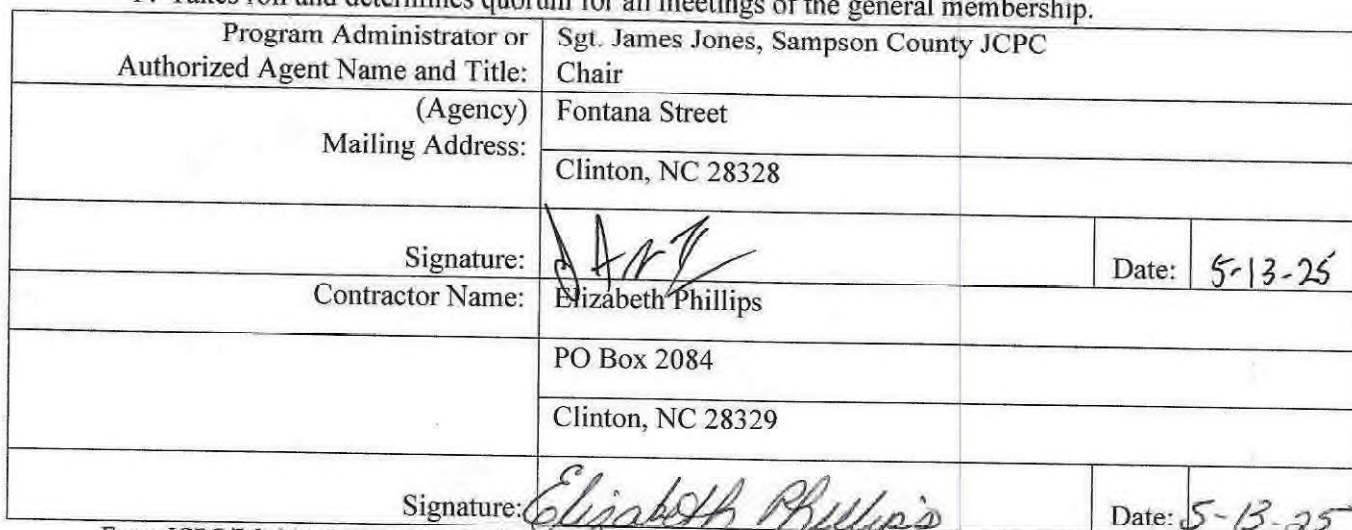 Takes roll and determines quorum for all meetings of the general membership.
Program Administrator or Authorized Agent Name and Title: Sgt. James Jones, Sampson County JCPC Chair
(Agency) Mailing Address: Fontana Street
Clinton, NC 28328
Signature: Date: 5-13-25
Contractor Name: Elizabeth Phillips
PO Box 2084
Clinton, NC 28329
Signature: Elizabeth Phillips Date: 5-13-25